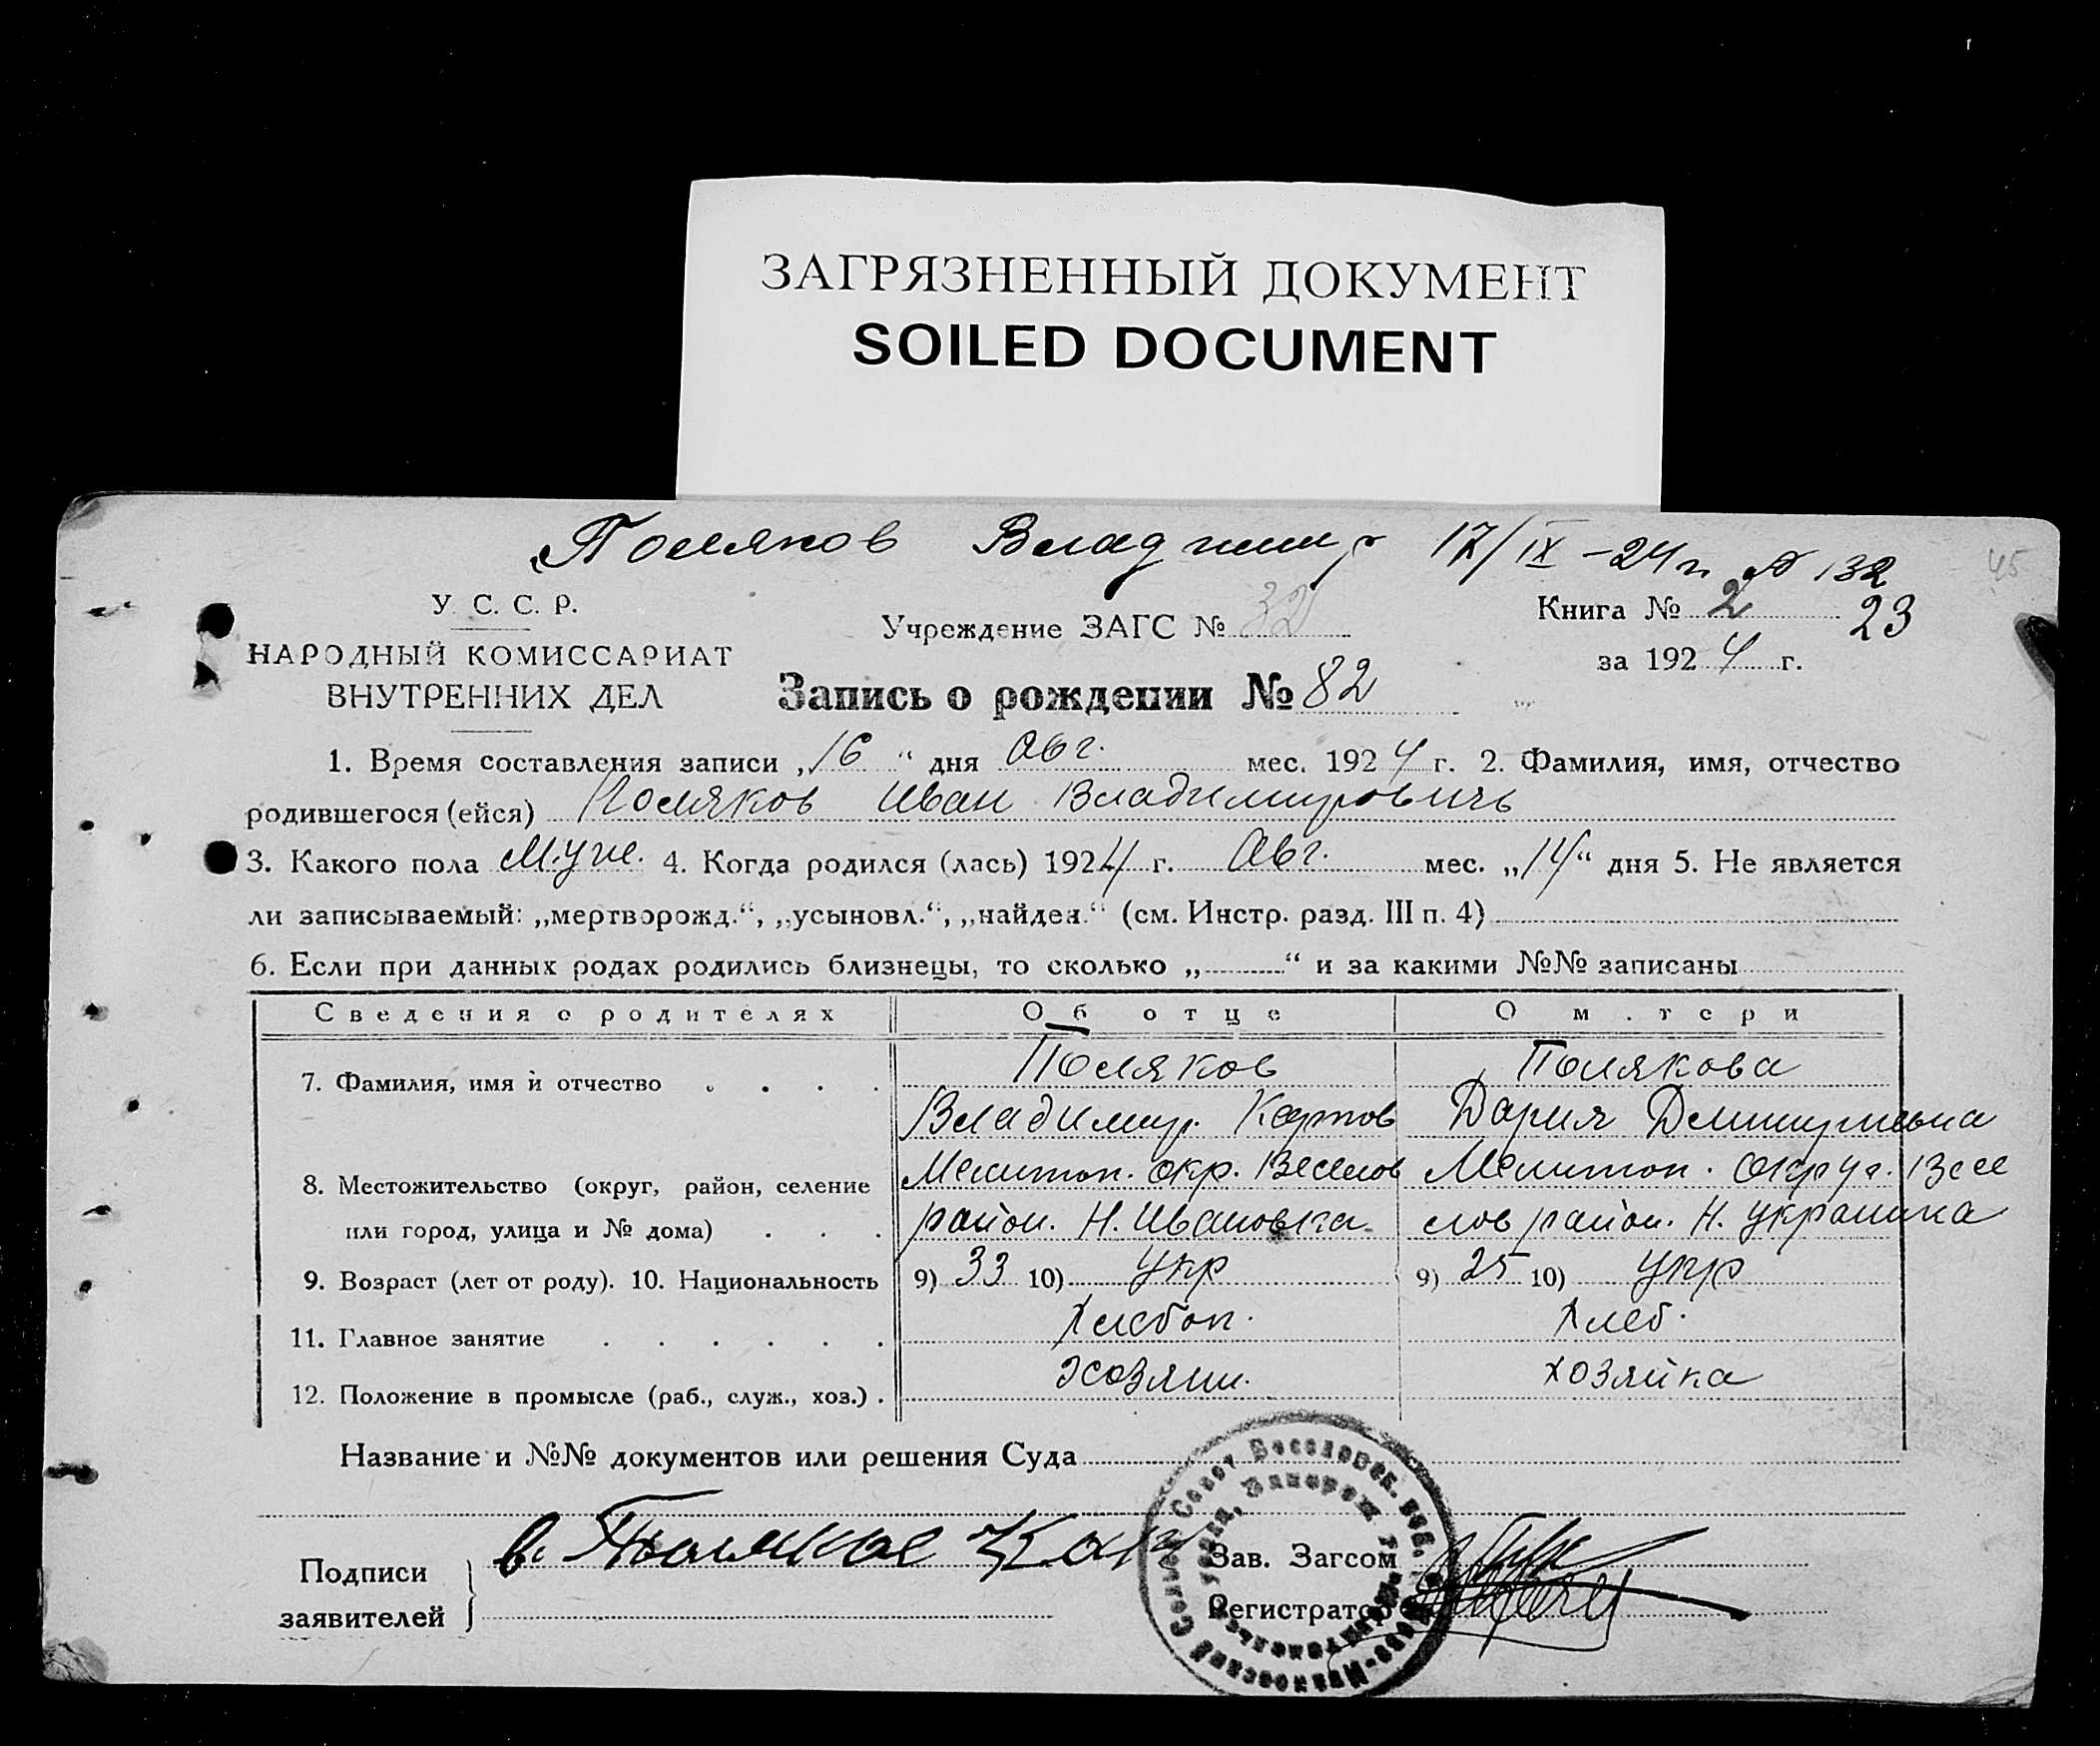 ЗАГРЯЗНЕННЫЙ ДОКУМЕНТ
SOILED DOCUMENT
Поляков Владимир 17/IX-24г. № 132
45
У. С. С. Р.
НАРОДНЫЙ КОМИССАРИАТ
ВНУТРЕННИХ ДЕЛ
Учреждение ЗАГС № 32
Книга № 2 23
за 1924 г.
Запись о рождении № 82
1. Время составления записи „16“ дня Авг. мес. 1924 г. 2. Фамилия, имя, отчество
родившегося (ейся) Поляков Иван Владимировичь
3. Какого пола Муж. 4. Когда родился (лась) 1924 г. Авг. мес. „14“ дня 5. Не является
ли записываемый: „мертворожд.“, „усыновл.“, „найден.“ (см. Инстр. разд. III п. 4)
6. Если при данных родах родились близнецы, то сколько „ “ и за какими №№ записаны
Сведения о родителях Об отце О матери
7. Фамилия, имя и отчество Поляков Полякова
Владимир. Дария
8. Местожительство (округ, район, селение Мелитоп. окр. Веселов Мелитоп. округ. Весе
или город, улица и № дома) район. Н. Ивановка лов район. Н. Украинка
9. Возраст (лет от роду). 10. Национальность 9) 33 10) Укр 9) 25 10) Укр
11. Главное занятие Хлебоп. Хлеб.
12. Положение в промысле (раб., служ., хоз.) Хозяин. хозяйка
Название и №№ документов или решения Суда
Подписи
заявителей
в. Поляков
Зав. Загсом
Регистратор